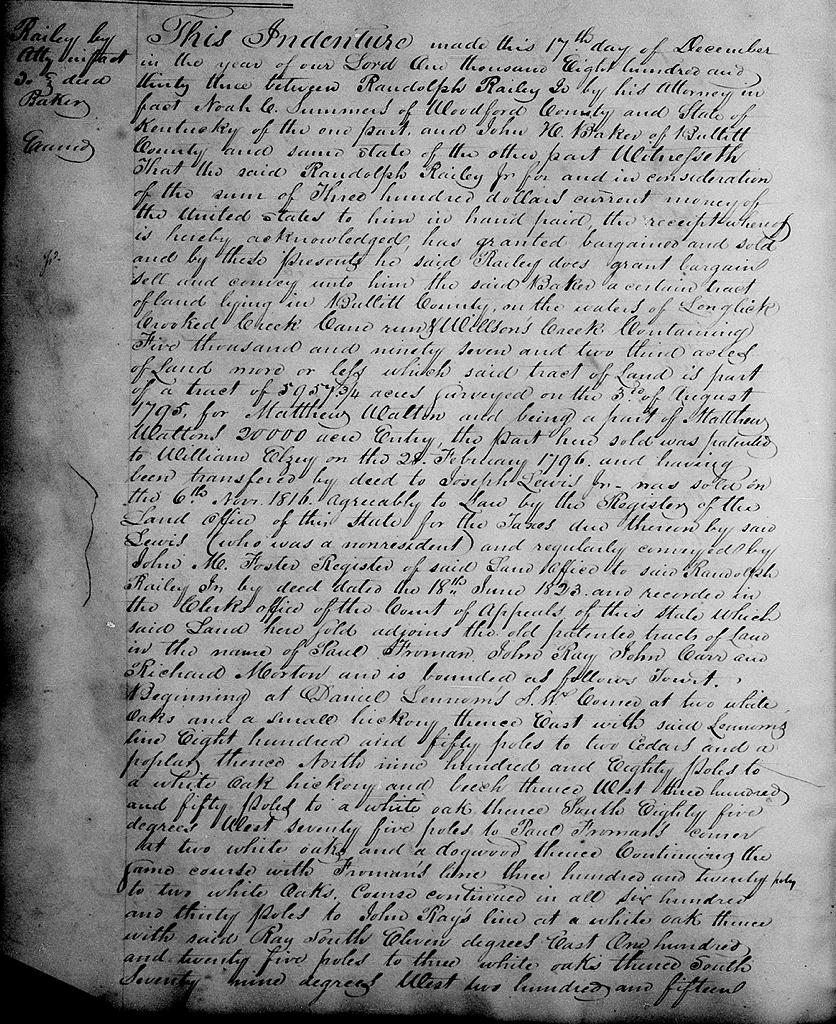 Railey by
Atty in fact
To deed
Baker
Examd
This Indenture made this 17th day of December
in the year of our Lord One thousand Eight hundred and
thirty three between Randolph Railey Jr by his Attorney in
fact Noah C. Summers of Woodford County and State of
Kentucky of the one part, and John W. Baker of Bullitt
County and same state of the other part Witnesseth
That the said Randolph Railey Jr for and in consideration
of the sum of Three hundred dollars current money of
the United States to him in hand paid, the receipt whereof
is hereby acknowledged, has granted bargained and sold
and by these presents he said Railey does grant bargain
sell and convey unto him the said Baker a certain tract
of land lying in Bullitt County, on the waters of Longlick
Crooked Creek Cane run & Willsons Creek Containing
Five thousand and ninety seven and two third acres
of Land more or less which said tract of Land is part
of a tract of 5957 3/4 acres surveyed on the 3rd of August
1795, for Matthew Walton and being a part of Matthew
Waltons 20000 acre Entry, the part here sold was patented
to William Elzey on the 28 February 1796. and having
been transfered by deed to Joseph Lewis Jr - was sold on
the 6th Novr. 1816. agreeably to Law by the Register of the
Land office of this State for the Taxes due thereon by said
Lewis (who was a nonresident) and regularly conveyed by
John M. Foster Register of said Land Office to said Randolph
Railey Jn by deed dated the 18th June 1823. and recorded in
the Clerks office of the Court of Appeals of this state which
said Land here sold adjoins the old patented tracts of Land
in the name of Paul Froman, John Ray John Carr and
Richard Morton and is bounded as follows Towit.
Beginning at Daniel Lennom's S.W. Corner at two white
Oaks and a small hickory thence East with said Lennoms
line Eight hundred and fifty poles to two Cedars and a
poplar thence North nine hundred and Eighty Poles to
a white Oak hickory and beech thence West three hundred
and fifty poles to a white oak thence South Eighty five
degrees West seventy five poles to Paul Fromans corner
at two white oaks and a dogwood thence Continuing the
same course with Froman's line three hundred and twenty poles
to two white Oaks, Course continued in all six hundred
and thirty poles to John Ray's line at a white oak thence
with said Ray South Eleven degrees East One hundred
and twenty five poles to three white oaks thence South
Seventy nine degrees West two hundred and fifteen